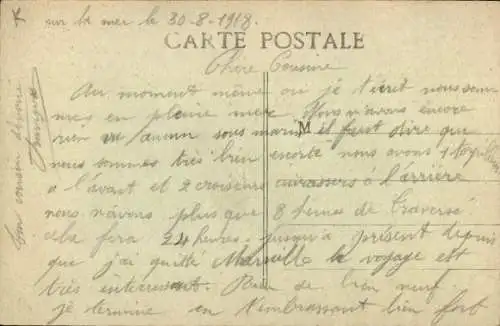 sur la mer le 30-8-1918.
CARTE POSTALE
Chère Cousine
Au moment même où je t'écrit nous som
mes en pleine mer Nous n'avons encore
rien vu aucun sous marin il faut dire que
nous sommes très bien escorté nous avons 1 torpilleur
a l'avant et 2 croiseurs cuirassers à l'arrière
nous n'avons plus que 8 heures de traversé
cela fera 24 heures. jusqu'a présent depuis
que j'ai quitté Marseille le voyage est
très intéressant. Rien de bien neuf.
je termine en t'embrassant bien fort
Ton cousin dévoué
François